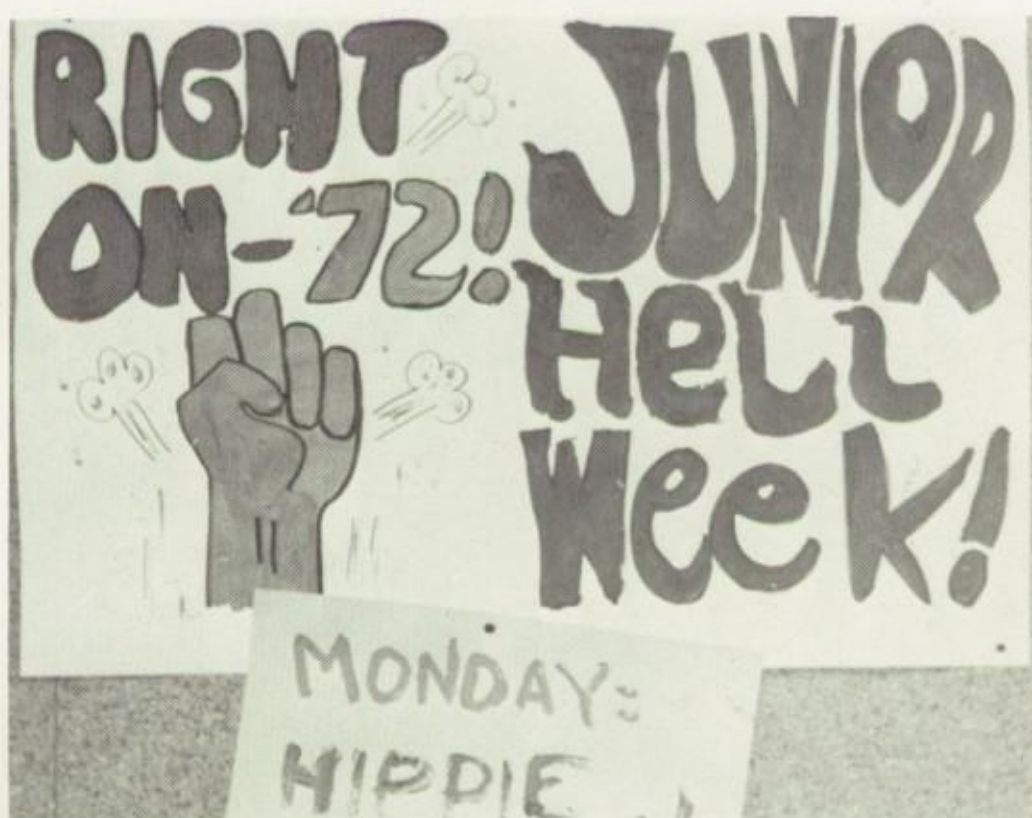 RIGHT
ON-'72!
JUNIOR
HELL
WEEK!
MONDAY:
HIPPIE